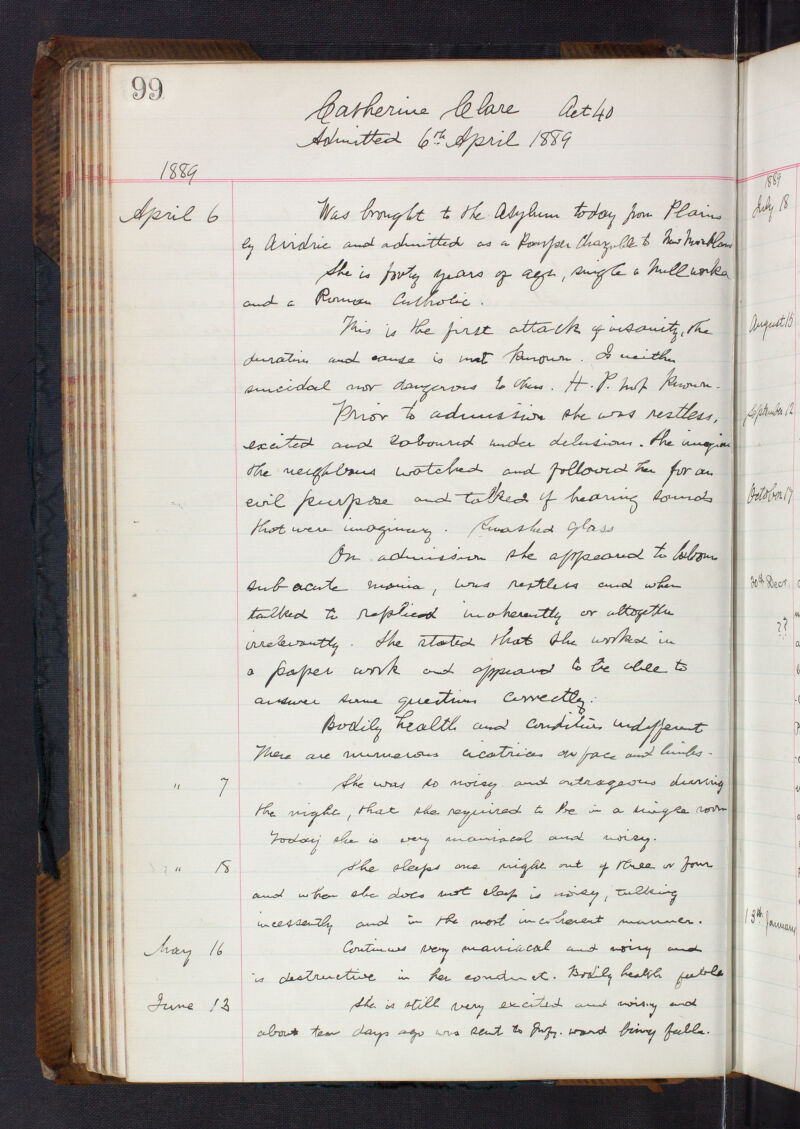 99
Catherine Clare Aet 40
Admitted 6th April 1889
1889
April 6 Was brought to the Asylum today from Plains
by Airdrie and admitted as a Pauper Chargeable to New Monkland
She is forty years of age, single a Mill worker
and a Roman Catholic.
This is the first attack of insanity, the
duration and cause is not known. Is neither
suicidal nor dangerous to others. H. P. not known.
Prior to admission she was restless,
excited and laboured under delusions. She imagines
the neighbours watched and followed her for an
evil purpose and talked of hearing sounds
that were imaginary. Smashed glass
On admission she appeared to labour
sub acute mania, was restless and when
talked to replied incoherently or altogether
irrelevantly. She stated that she worked in
a paper work and appeared to be able to
answer some questions correctly.
Bodily health and condition indifferent
There are numerous cicatrices on face and limbs.
" 7 She was so noisy and outrageous during
the night, that she required to be in a single room
Today she is very maniacal and noisy.
" 18 She sleeps one night out of three or four
and when she does not sleep is noisy, talking
incessantly and in the most incoherent manner.
May 16 Continues very maniacal and noisy and
is destructive in her conduct. Bodily health feeble
June 13 She is still very excited and noisy and
about ten days ago was sent to Infy. ward being feeble.
1889
July 18
August 15
September 12
October 17
Decr.
??
13th January